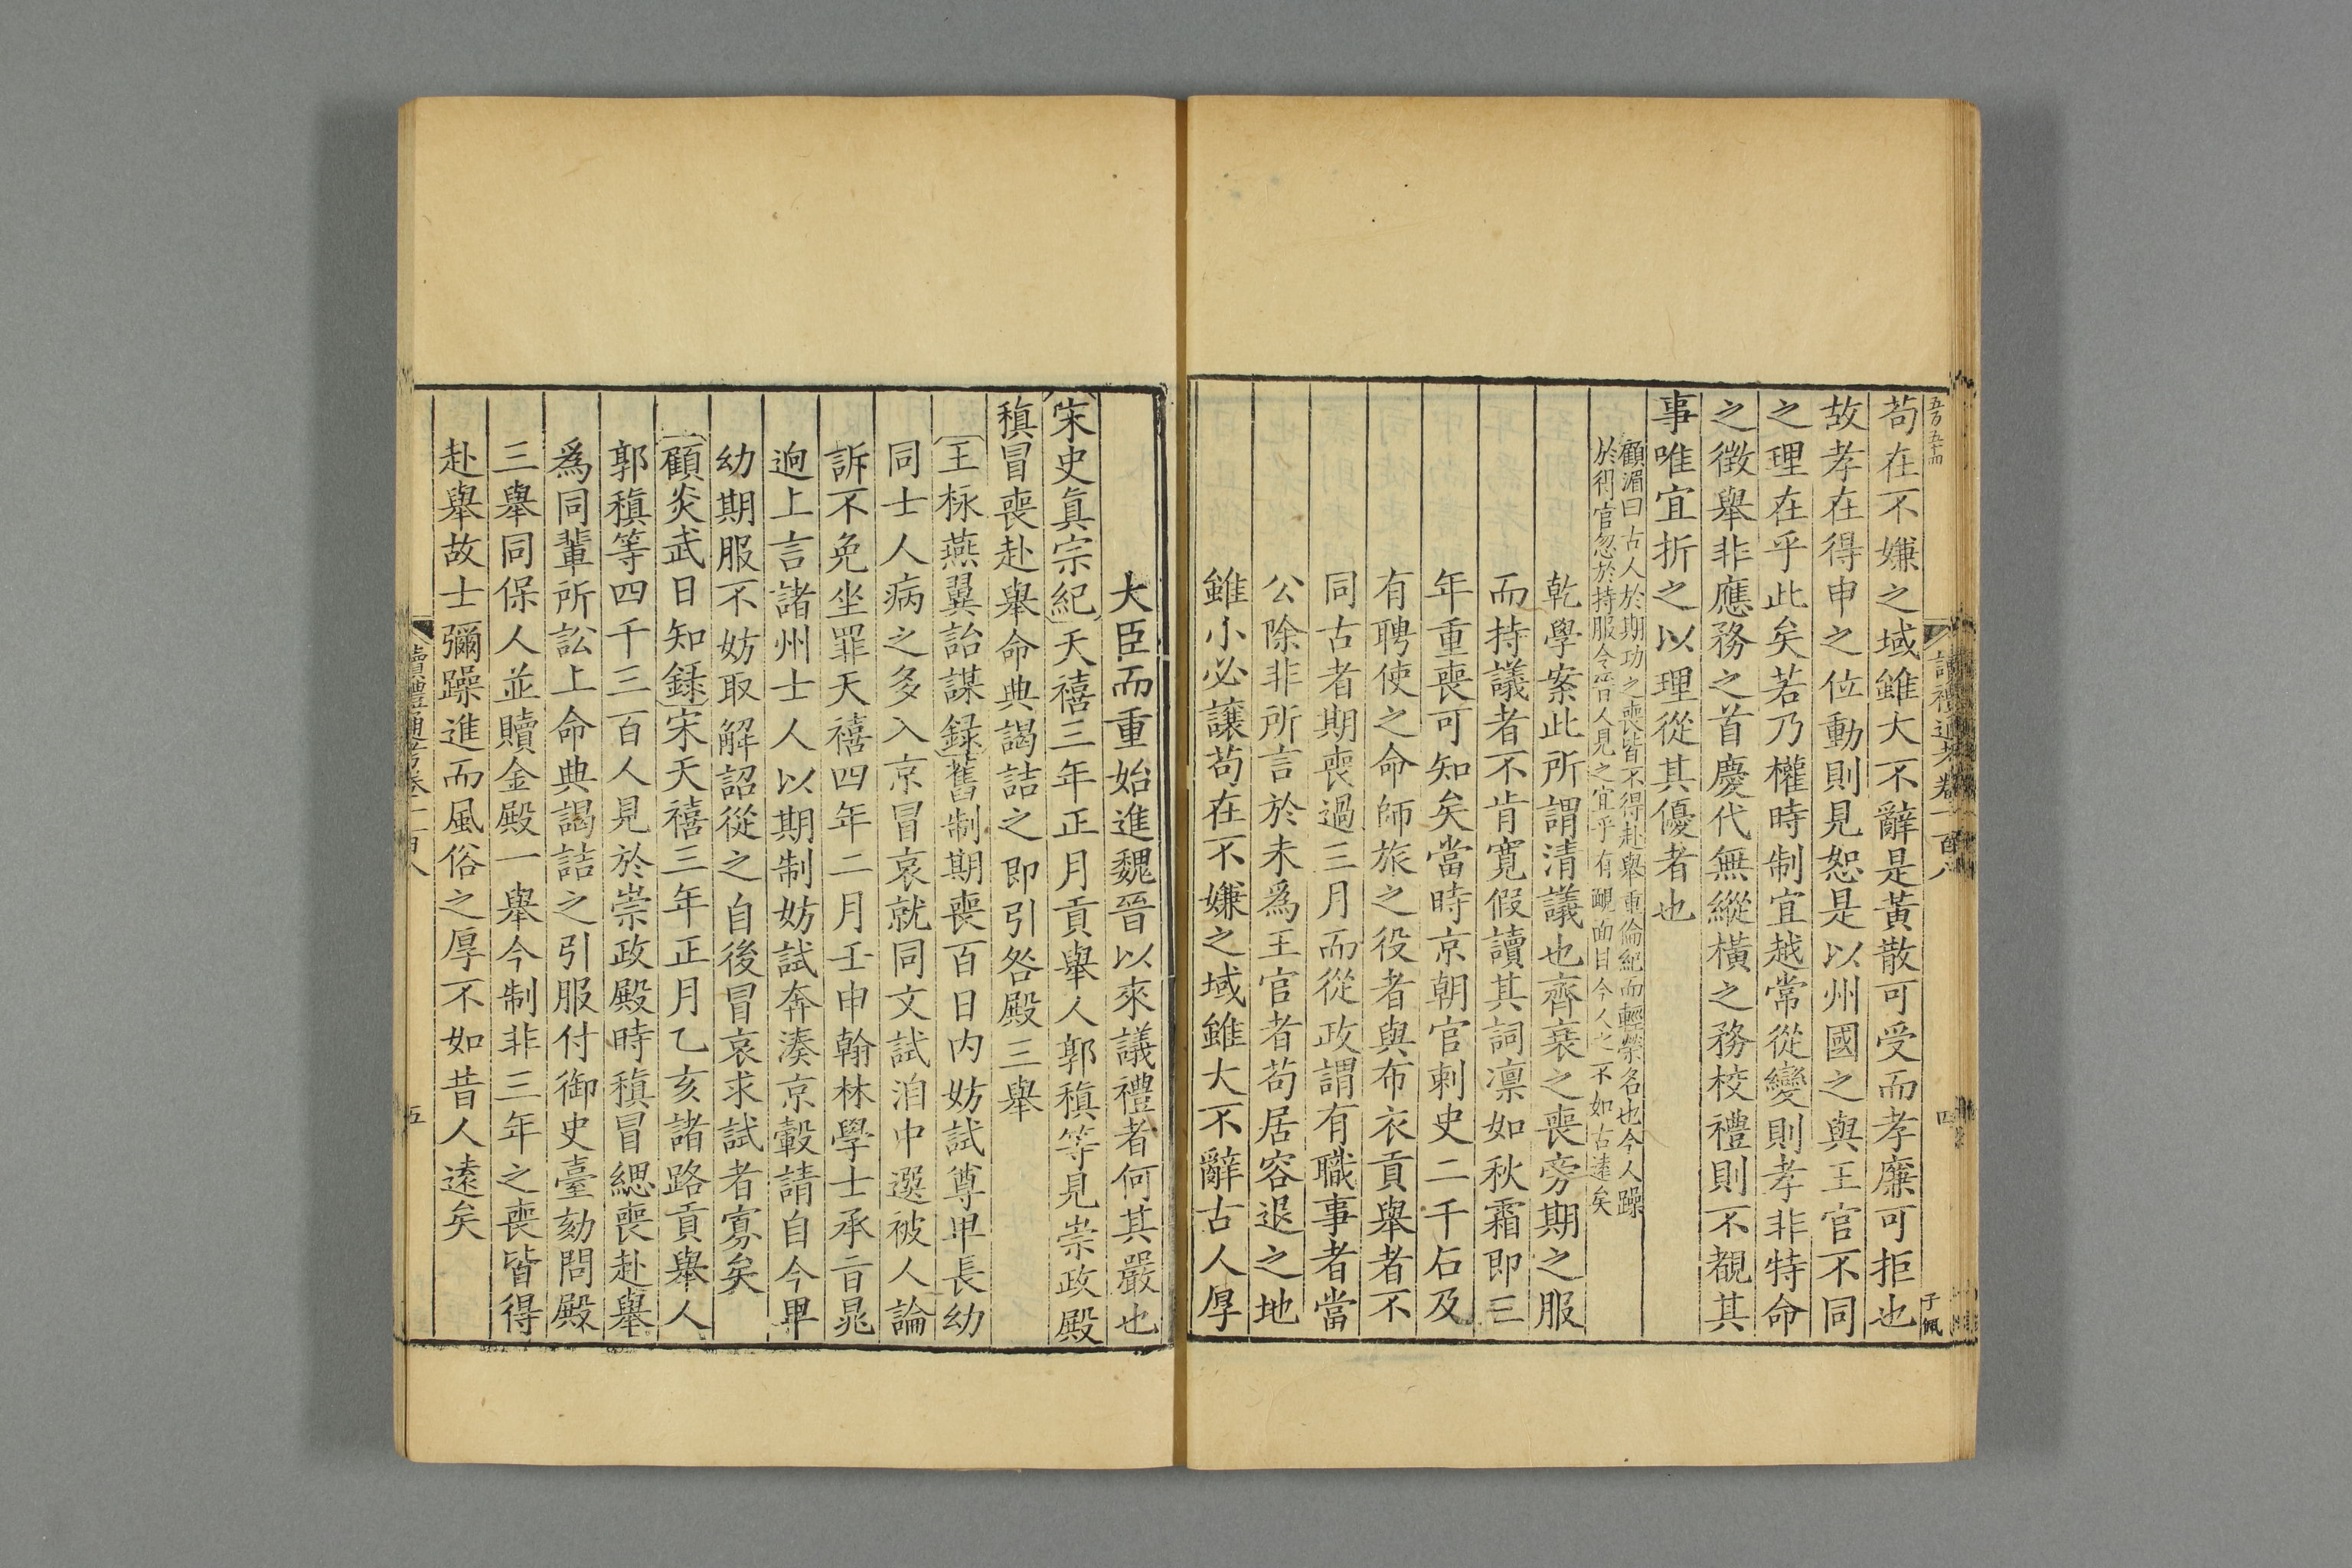 五百五十四
苟在不嫌之域雖大不辭是黃散可受而孝廉可拒也
故孝在得申之位動則見恕是以州國之與王官不同
之理在乎此矣若乃權時制宜越常從變則孝非特命
之徵舉非應務之首慶代無縱橫之務校禮則不覩其
事唯宜折之以理從其優者也
顧湄曰古人於期功之喪皆不得赴舉重倫紀而輕榮名也今人躁
於得官忽於持服令晉人見之宜乎有靦面目今人之不如古遠矣
乾學案此所謂清議也齊衰之喪旁期之服
而持議者不肯寬假讀其詞凛如秋霜即三
年重喪可知矣當時京朝官刺史二千石及
有聘使之命師旅之役者與布衣貢舉者不
同古者期喪過三月而從政謂有職事者當
公除非所言於未爲王官者苟居容退之地
雖小必讓苟在不嫌之域雖大不辭古人厚
讀禮通考卷一百八
四
子佩
大臣而重始進魏晉以來議禮者何其嚴也
宋史眞宗紀天禧三年正月貢舉人郭稹等見崇政殿
稹冒喪赴舉命典謁詰之即引咎殿三舉
王栐燕翼詒謀録舊制期喪百日内妨試尊卑長幼
同士人病之多入京冒哀就同文試洎中選被人論
訴不免坐罪天禧四年二月壬申翰林學士承旨晁
迥上言諸州士人以期制妨試奔湊京轂請自今卑
幼期服不妨取解詔從之自後冒哀求試者寡矣
顧炎武日知録宋天禧三年正月乙亥諸路貢舉人
郭稹等四千三百人見於崇政殿時稹冒緦喪赴舉
爲同輩所訟上命典謁詰之引服付御史臺劾問殿
三舉同保人並贖金殿一舉今制非三年之喪皆得
赴舉故士彌躁進而風俗之厚不如昔人遠矣
讀禮通考卷一百八
五